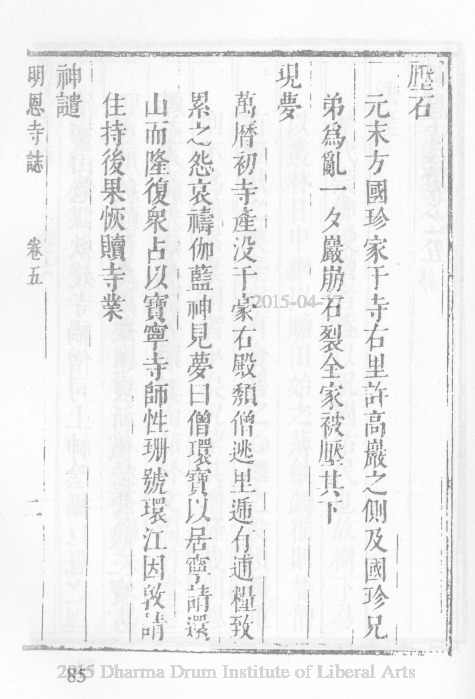 壓石
元末方國珍家于寺右里許高巖之側及國珍兄
弟爲亂一夕巖崩石裂全家被壓其下
現夢
萬曆初寺產没于豪右殿頹僧逃里逓有逋糧致
累之怨哀禱伽藍神見夢曰僧環寶以居寧請還
山而隆復衆占以寶寧寺師性珊號環江因敦請
住持後果恢贖寺業
神譴
明恩寺誌
卷五
二
2015-04-
85
2015 Dharma Drum Institute of Liberal Arts